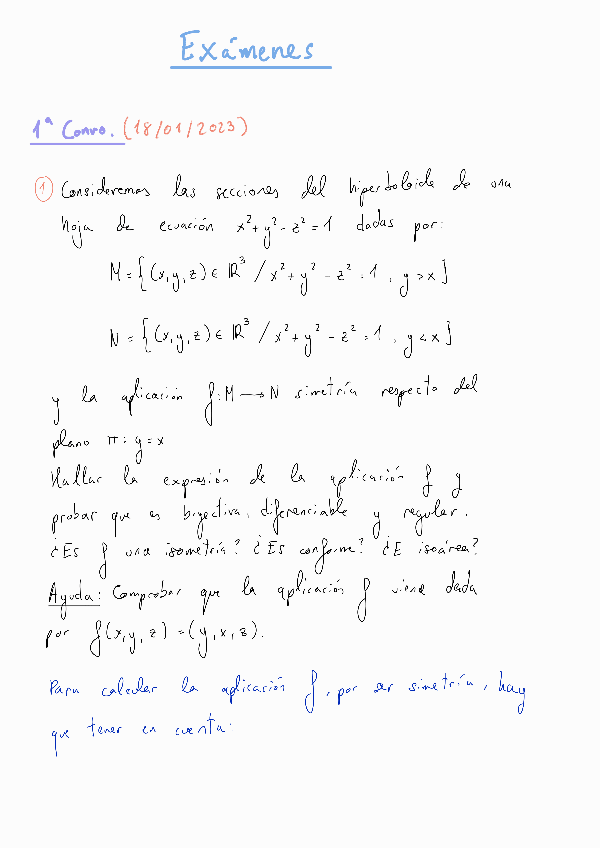 Exámenes
1ª Convo. (18/01/2023)
① Consideremos las secciones del hiperboloide de una
hoja de ecuación x²+y²-z²=1 dadas por:
M={(x,y,z)∈ℝ³/x²+y²-z²=1, y>x}
N={(x,y,z)∈ℝ³/x²+y²-z²=1, y<x}
y la aplicación f:M→N simetría respecto del
plano π:y=x
Hallar la expresión de la aplicación f y
probar que es biyectiva, diferenciable y regular.
¿Es f una isometría? ¿Es conforme? ¿E isoárea?
Ayuda: Comprobar que la aplicación f viene dada
por f(x,y,z)=(y,x,z).
Para calcular la aplicación f, por ser simetría, hay
que tener en cuenta: